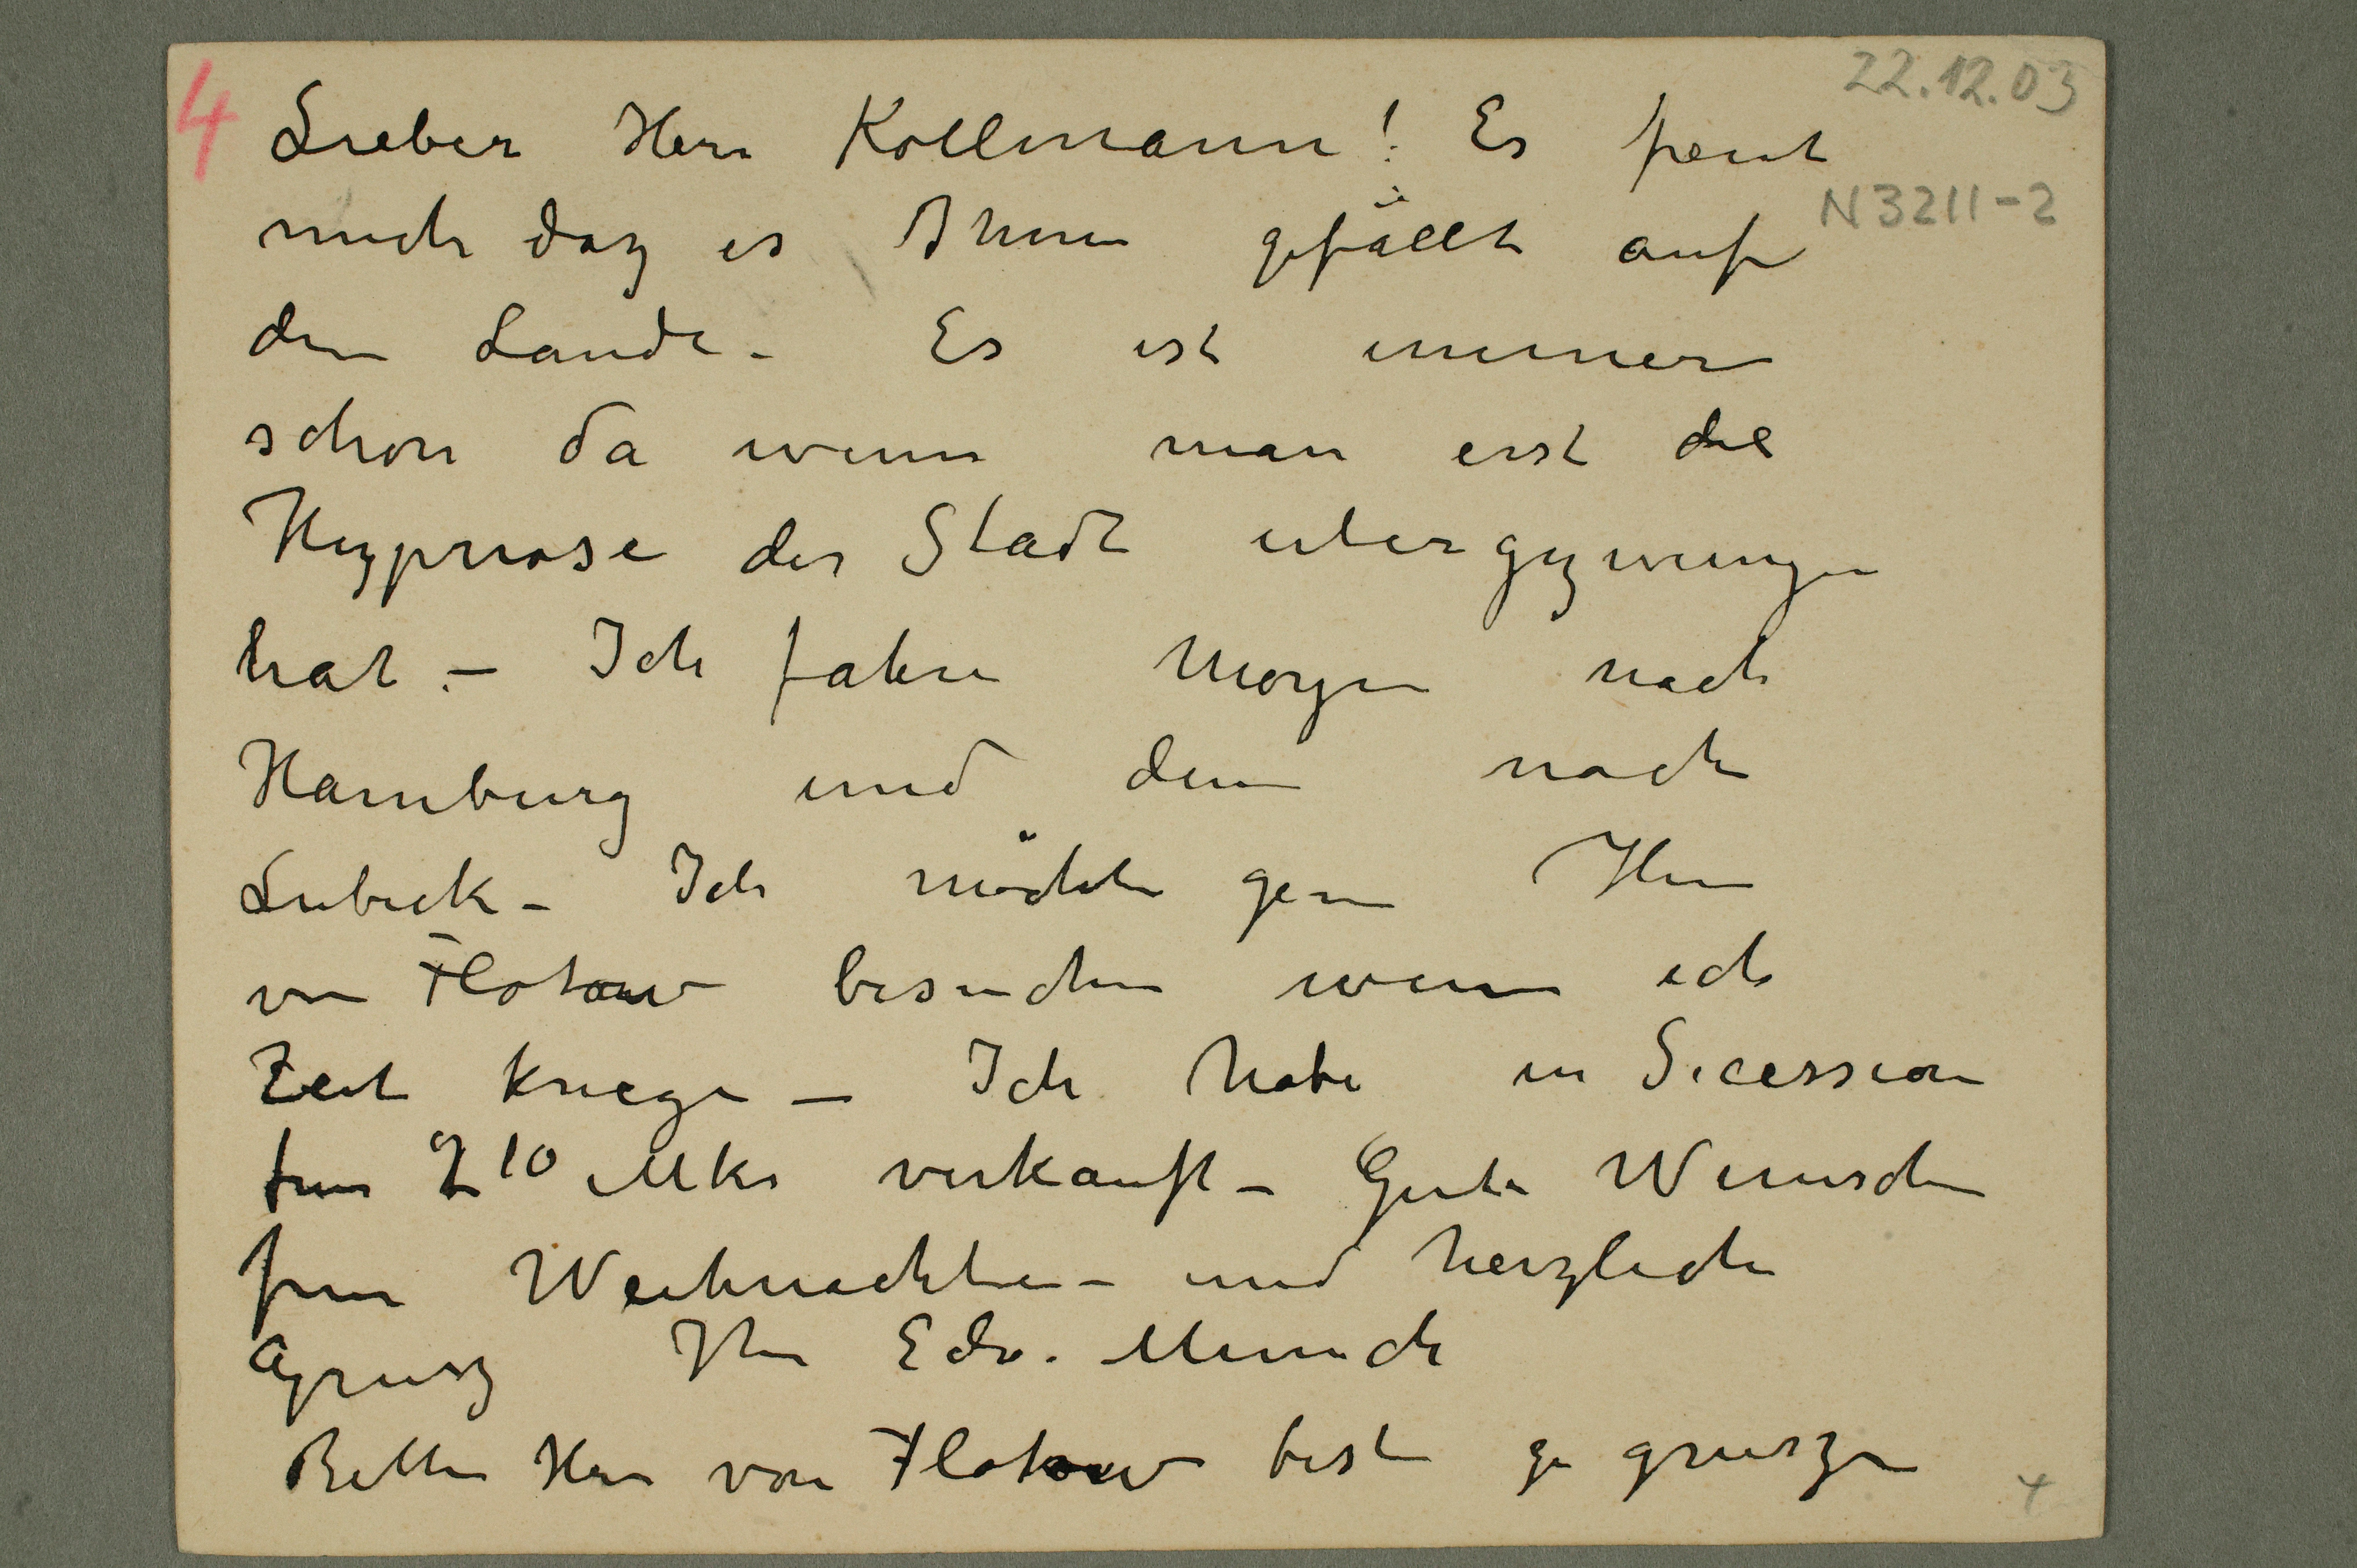 4
22.12.03
Lieber Herr Kollmann! Es freut
N 3211-2
mich dasz es Ihnen gefällt auf
dem Lande - Es ist immer
schön da wenn man erst die
Hypnose der Stadt ubergezwungen
hat. - Ich fahre Morgen nach
Hamburg und denn nach
Lubeck - Ich möchte gern Herrn
von Flotow besuchen wenn ich
Zeit kriege - Ich habe in Secession
fur 210 Mks verkauft - Gute Wunsche
fur Weihnachten - und herzliche
Grusz Ihr Edv. Munch
Bitte Herr von Flotow best zu gruszen
4